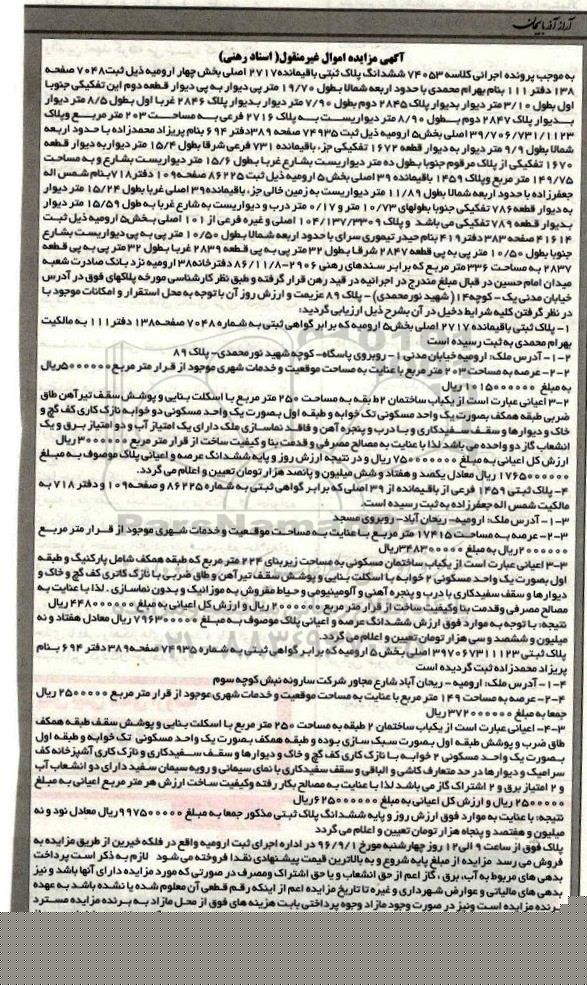 آراز آذربایجان
آگهی مزایده اموال غیرمنقول( اسناد رهنی)
به موجب پرونده اجرائی کلاسه ۷۴۰۵۳ ششدانگ پلاک ثبتی باقیمانده ۲۷۱۷ اصلی بخش چهار ارومیه ذیل ثبت ۷۰۴۸ صفحه
۱۳۸ دفتر ۱۱۱ بنام بهرام محمدی با حدود اربعه شمالا بطول ۱۹/۷۰ متر پی دیوار به پی دیوار قطعه دوم این تفکیکی جنوبا
اول بطول ۳/۱۰ متر دیوار بدیوار پلاک ۲۸۴۵ دوم بطول ۷/۹۰ متر دیوار بدیوار پلاک ۲۸۴۶ غربا اول بطول ۸/۵ متر دیوار
بدیوار پلاک ۲۸۴۷ دوم بطول ۸/۹۰ متر دیواریست به پلاک ۲۷۱۶ فرعی به مساحت ۲۰۳ متر مربع وپلاک
۳۹/۷۰۶/۷۳۱/۱۱۲۳ اصلی بخش۵ ارومیه ذیل ثبت ۷۴۹۳۵ صفحه ۳۸۹ دفتر ۶۹۴ بنام پریزاد محمدزاده با حدود اربعه
شمالا بطول ۹/۹ متر دیوار به دیوار قطعه ۱۶۷۲ تفکیکی جز، باقیمانده ۷۳۱ فرعی شرقا بطول ۱۵/۴ متر دیوار به دیوار قطعه
۱۶۷۰ تفکیکی از پلاک مرقوم جنوبا بطول ده متر دیواریست بشارع غربا بطول ۱۵/۶ متر دیواریست بشارع و به مساحت
۱۴۹/۷۵ متر مربع وپلاک ۱۴۵۹ باقیمانده ۳۹ اصلی بخش ۵ ارومیه ذیل ثبت ۸۶۲۲۵ صفحه۱۰۹ دفتر۷۱۸ بنام شمس اله
جعفرزاده با حدود اربعه شمالا بطول ۱۱/۸۹ متر دیواریست به زمین خالی جز، باقیمانده ۳۹ اصلی غربا بطول ۱۵/۲۴ متر دیوار
به دیوار قطعه ۷۸۶ تفکیکی جنوبا بطولهای ۱۰/۷۳ متر و ۰/۱۷ متر درب و دیواریست به شارع غربا به طول ۱۵/۵۹ متر دیوار
بدیوار قطعه ۷۸۹ تفکیکی می باشد و پلاک ۱۰۴/۱۳۷/۳۳۰۹ اصلی و غیره فرعی از ۱۰۱ اصلی بخش۵ ارومیه ذیل ثبت
۴۱۶۱۴ صفحه ۳۸۳ دفتر ۴۱۹ بنام حیدر تیموری سرای با حدود اربعه شمالا بطول ۱۰/۵۰ متر پی به پی دیواریست بشارع
جنوبا بطول ۱۰/۵۰ متر پی به پی قطعه ۲۸۴۷ شرقا بطول ۳۲ متر پی به پی قطعه ۲۸۳۹ غربا بطول ۳۲ متر پی به پی قطعه
۲۸۳۷ به مساحت ۳۳۶ متر مربع که برابر سندهای رهنی ۲۹۰۶-۸۶/۱۱/۸ دفترخانه ۳۸ ارومیه نزد بانک صادرت شعبه
میدان امام حسین در قبال مبلغ مندرج در اجرائیه در قید رهن قرار گرفته و طبق نظر کارشناسی مورخه پلاکهای فوق در آدرس
خیابان مدنی یک - کوچه۱۴ ( شهید نورمحمدی) - پلاک ۸۹ عزیمت و ارزش روز آن با توجه به محل استقرار و امکانات موجود با
در نظر گرفتن کلیه شرایط دخیل در آن بشرح ذیل ارزیابی گردید:
۱- پلاک ثبتی باقیمانده ۲۷۱۷ اصلی بخش۵ ارومیه که برابر گواهی ثبتی به شماره ۷۰۴۸ صفحه ۱۳۸ دفتر ۱۱۱ به مالکیت
بهرام محمدی به ثبت رسیده است
۱-۲- آدرس ملک: ارومیه خیابان مدنی ۱ - روبروی پاسگاه- کوچه شهید نور محمدی- پلاک ۸۹
۲-۲- عرصه به مساحت ۲۰۳ متر مربع با عنایت به مساحت موقعیت و خدمات شهری موجود از قرار متر مربع ۵۰۰۰۰۰۰ریال
به مبلغ ۱۰۱۵۰۰۰۰۰۰ ریال
۳-۲ اعیانی عبارت است از یکباب ساختمان ۲طبقه به مساحت ۲۵۰ متر مربع با اسکلت بنایی و پوشش سقف تیرآهن طاق
ضربی طبقه همکف بصورت یک واحد مسکونی تک خوابه و طبقه اول بصورت یک واحد مسکونی دو خوابه نازک کاری کف گچ و
خاک و دیوارها و سقف سفیدکاری و با درب و پنجره آهن و فاقد نماسازی ملک دارای یک امتیاز آب و دو امتیاز برق و یک
انشعاب گاز دو واحده می باشد لذا با عنایت به مصالح مصرفی و قدمت بنا و کیفیت ساخت از قرار متر مربع ۳۰۰۰۰۰۰ ریال
ارزش کل اعیانی به مبلغ ۷۵۰۰۰۰۰۰۰ ریال و در نتیجه ارزش روز و پایه ششدانگ عرصه و اعیانی پلاک موصوف به مبلغ
۱۷۶۵۰۰۰۰۰۰ ریال معادل یکصد و هفتاد و شش میلیون و پانصد هزار تومان تعیین و اعلام می گردد.
۴- پلاک ثبتی ۱۴۵۹ فرعی از باقیمانده از ۳۹ اصلی که برابر گواهی ثبتی به شماره ۸۶۲۲۵ و صفحه ۱۰۹ و دفتر ۷۱۸ به
مالکیت شمس اله جعفرزاده به ثبت رسیده است.
۱-۳- آدرس ملک: ارومیه- ریحان آباد- روبروی مسجد
۲-۳- عرصه به مساحت ۱۷۴۱۵ متر مربع با عنایت به مساحت موقعیت و خدمات شهری موجود از قرار متر مربع
۲۰۰۰۰۰۰ریال به مبلغ ۳۴۸۳۰۰۰۰۰ریال
۳-۳ اعیانی عبارت است از یکباب ساختمان مسکونی به مساحت زیربنای ۲۲۴ متر مربع که طبقه همکف شامل پارکنیگ و طبقه
اول بصورت یک واحد مسکونی ۲ خوابه با اسکلت بنایی و پوشش سقف تیرآهن و طاق ضربی با نازک کاتری کف گچ و خاک و
دیوارها و سقف سفیدکاری با درب و پنجره آهنی و آلومینیومی و حیاط مفروش به موزائیک و بدون نماسازی . لذا با عنایت به
مصالح مصرفی وقدمت بنا وکیفیت ساخت از قرار متر مربع ۲۰۰۰۰۰۰ ریال و ارزش کل اعیانی به مبلغ ۴۴۸۰۰۰۰۰۰ ریال
نتیجه: با توجه به موارد فوق ارزش ششدانگ عرصه و اعیانی پلاک موصوف به مبلغ ۷۹۶۳۰۰۰۰۰ ریال معادل هفتاد و نه
میلیون و ششصد و سی هزار تومان تعیین و اعلام می گردد.
پلاک ثبتی ۳۹۷۰۶۷۳۱۱۱۲۳ اصلی بخش ۵ ارومیه که برابر گواهی ثبتی به شماره ۷۴۹۳۵ صفحه ۳۸۹ دفتر ۶۹۴ بنام
پریزاد محمدزاده ثبت گردیده است
۱-۴- آدرس ملک: ارومیه - ریحان آباد شارع مجاور شرکت سارونه نبش کوچه سوم
۲-۴- عرصه به مساحت ۱۴۹ متر مربع با عنایت به مساحت موقعیت و خدمات شهری موجود از قرار متر مربع ۲۵۰۰۰۰۰ ریال
جمعا به مبلغ ۳۷۲۰۰۰۰۰۰ ریال
۳-۴- اعیانی عبارت است از یکباب ساختمان ۲ طبقه به مساحت ۲۵۰ متر مربع با اسکلت بنایی و پوشش سقف طبقه همکف
طاق ضرب و پوشش طبقه اول بصورت سبک سازی بوده و طبقه همکف بصورت یک واحد مسکونی تک خوابه و طبقه اول
بصورت یک واحد مسکونی ۲ خوابه با نازک کاری کف گچ و خاک و دیوارها و سقف سفیدکاری و نازک کاری آشپزخانه کف
سرامیک و دیوارها در حد متعارف کاشی و الباقی و سقف سفیدکاری با نمای سیمانی و رویه سیمان سفید دارای دو انشعاب آب
و ۲ امتیاز برق و ۲ اشتراک گاز می باشد لذا با عنایت به مصالح بکار رفته وکیفیت ساخت ارزش هر متر مربع اعیانی به مبلغ
۲۵۰۰۰۰۰ ریال و ارزش کل اعیانی به مبلغ ۶۲۵۰۰۰۰۰۰ریال
نتیجه: با عنایت به موارد فوق ارزش روز و پایه ششدانگ پلاک ثبتی مذکور جمعا به مبلغ ۹۹۷۵۰۰۰۰۰ ریال معادل نود و نه
میلیون و هفتصد و پنجاه هزار تومان تعیین و اعلام می گردد
پلاک فوق از ساعت ۹ الی ۱۲ روز چهارشنبه مورخ ۹۶/۹/۱ در اداره اجرای ثبت ارومیه واقع در فلکه خیرین از طریق مزایده به
فروش می رسد مزایده از مبلغ پایه شروع و به بالاترین قیمت پیشنهادی نقدا فروخته می شود لازم به ذکر است پرداخت
بدهی های مربوط به آب، برق ، گاز اعم از حق انشعاب و یا حق اشتراک ومصرف در صورتی که مورد مزایده دارای آنها باشد و نیز
بدهی های مالیاتی و عوارض شهرداری و غیره تا تاریخ مزایده اعم از اینکه رقم قطعی آن معلوم شده یا نشده باشد به عهده
برنده مزایده است ونیز در صورت وجود مازاد وجوه پرداختی بابت هزینه های فوق از محل مازاد به برنده مزایده مسترد